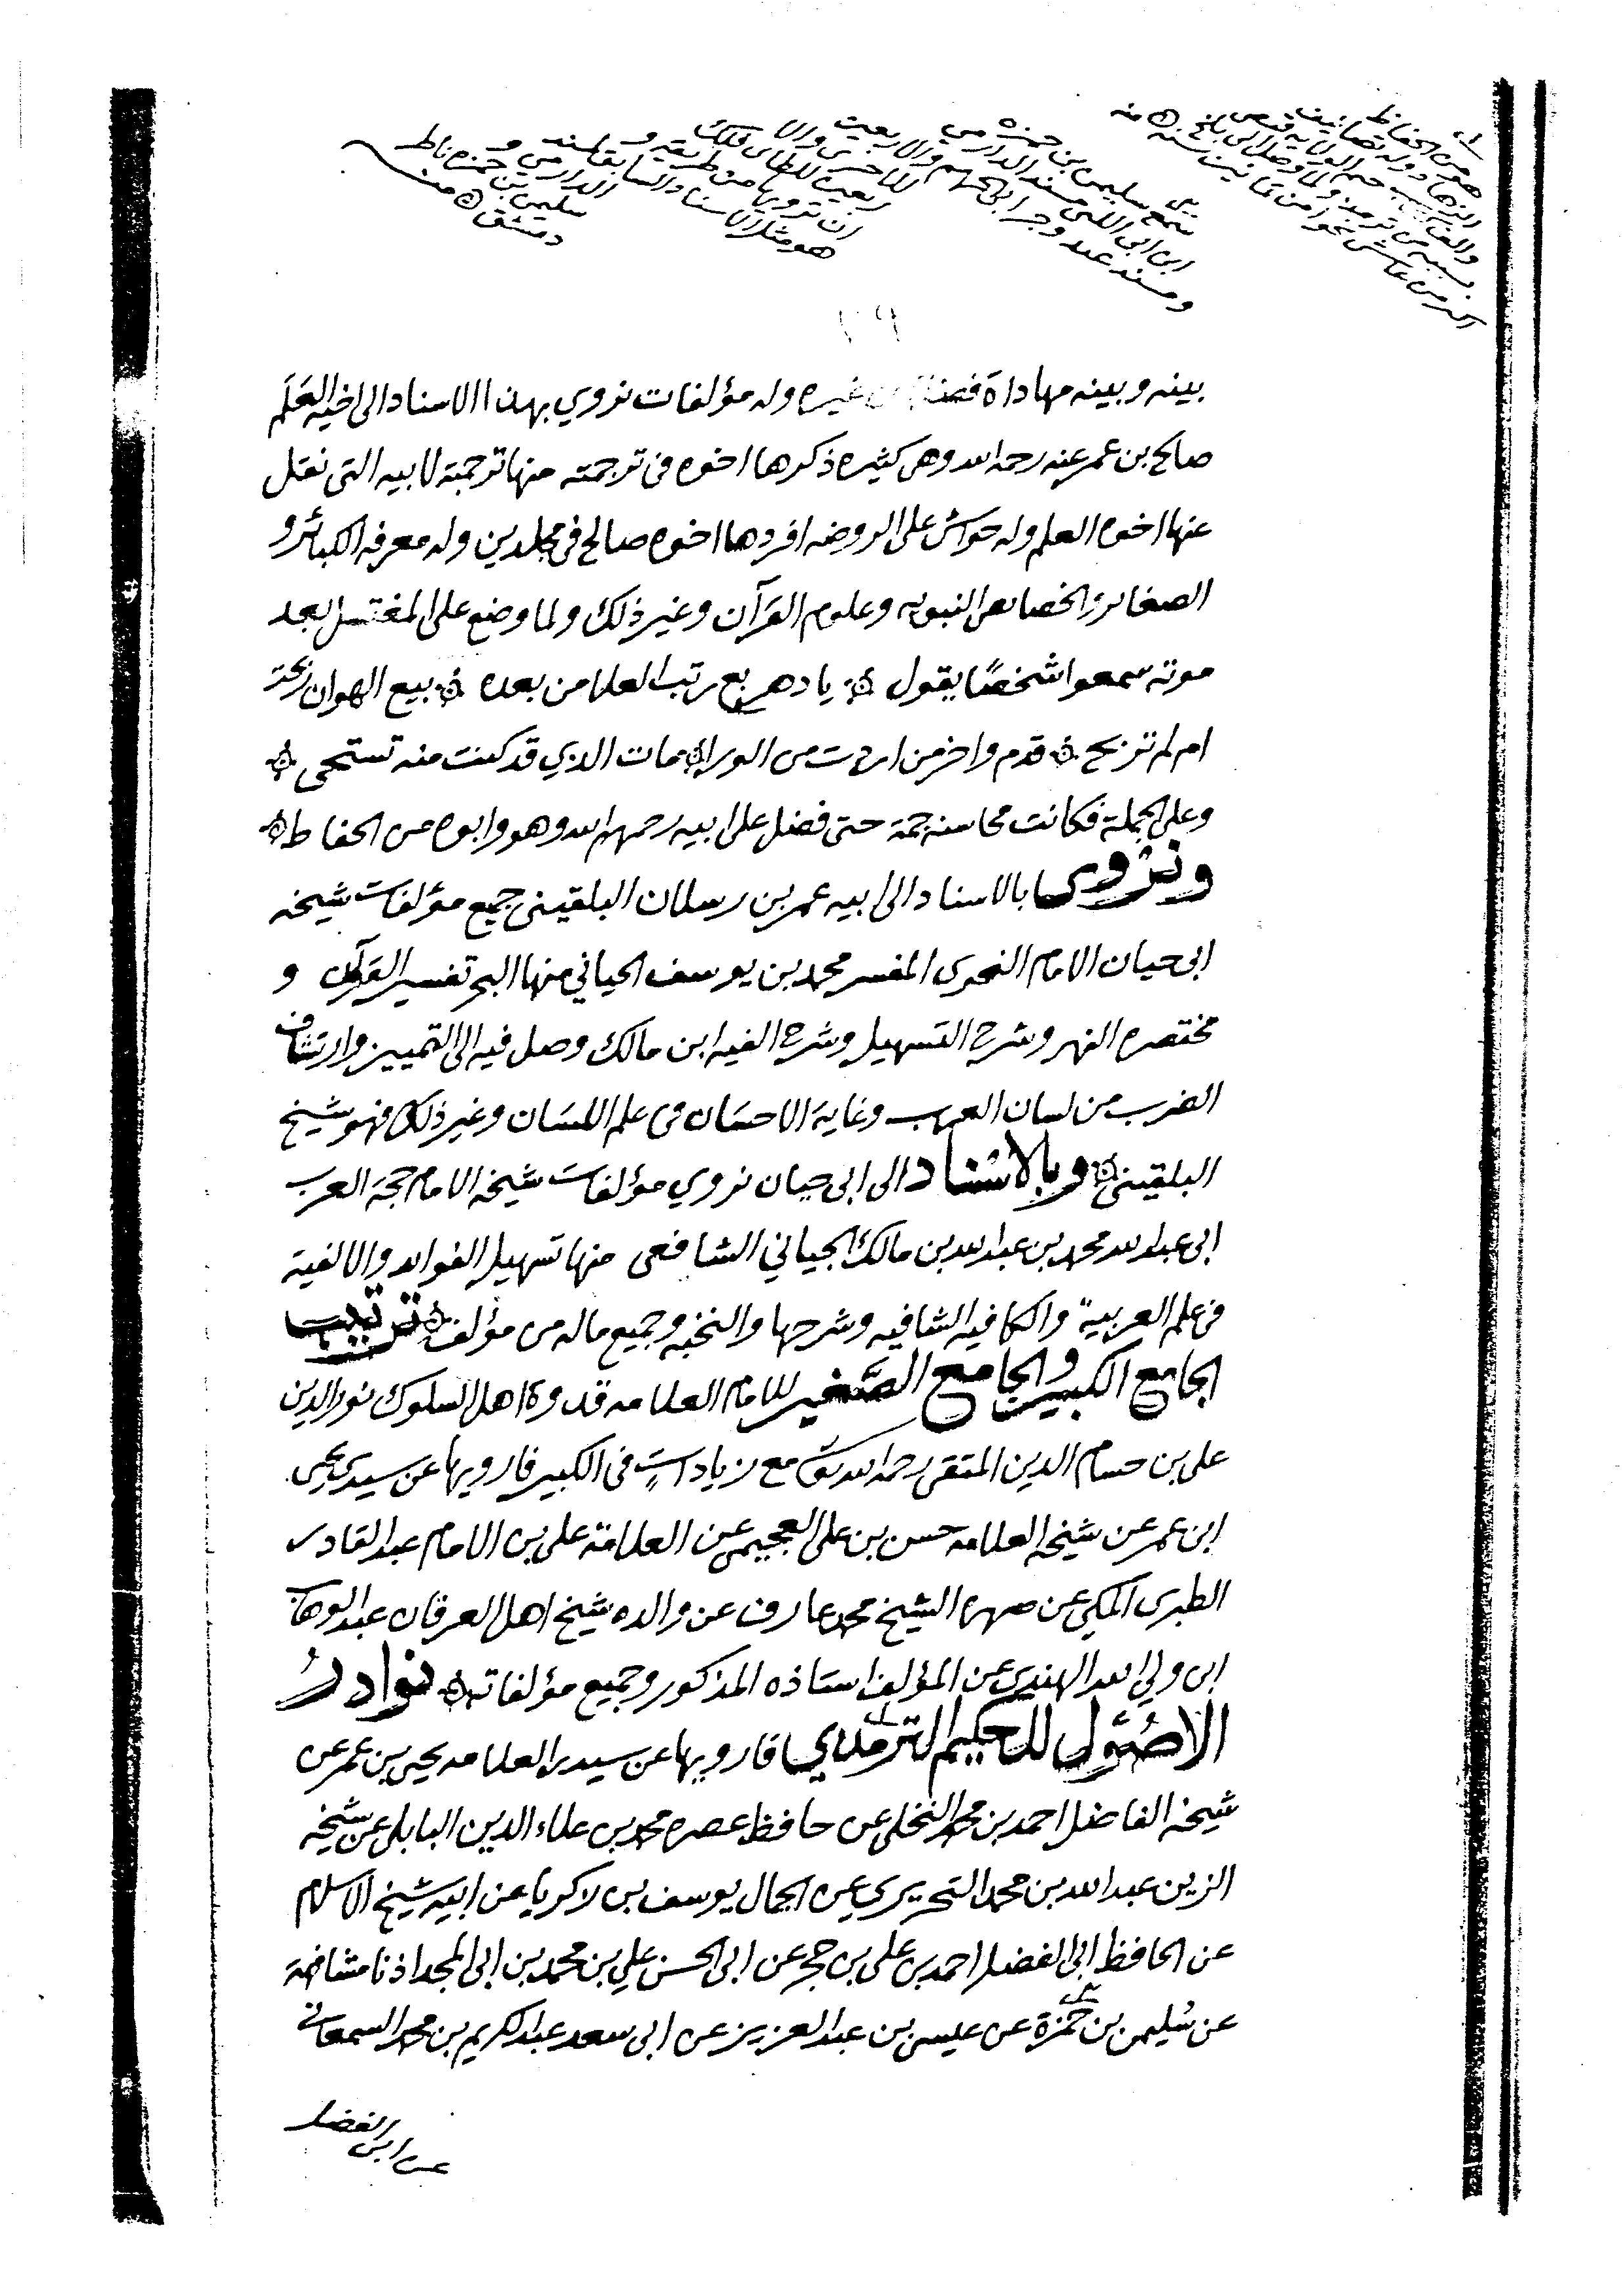 هو من الحفاظ
الزهاد وله تصانيف
سمع سليمن بن حمزه
ابن ابي اللتي مسند الدارمي
ومسند عبد وجزء ابي الجهم والاربعين
ان ترويها من طريقه و
هو مثل الاسناد السابق
سليمن بن حمزه
دمشق
بينه وبينه مهاداة غيره وله مؤلفات نروي بهذا الاسناد الى اخيه العَلَم
صالح بن عمر عنه رحمه الله وهي كثيره ذكرها اخوه في ترجمته منها ترجمة لابيه التي نقل
عنها اخوه العلم وله حواش على الروضه افردها اخوه صالح في مجلدين وله معرفه الكبائر و
الصغاير والخصايص النبويه وعلوم القرآن وغير ذلك ولما وضع على المغتسل بعد
موته سمعوا شخصًا يقول يا دهر بع رتب العلا من بعده بيع الهوان ربحت
ام لم تربح قدم واخر من اردت من الورا مات الذي قد كنت منه تستحي
وعلى الجملة فكانت محاسنه جمة حتى فضل على ابيه رحمهم الله وهو وابوه من الحفاظ
ونروي بالاسناد الى ابيه عمر بن رسلان البلقيني جميع مؤلفات شيخه
ابي حيان الامام النحوي المفسر محمد بن يوسف الحياني منها البحر تفسير القرآن و
مختصره النهر وشرح التسهيل وشرح الفيه ابن مالك وصل فيه الى التمييز وارتشاف
الضرب من لسان العرب وغاية الاحسان في علم اللسان وغير ذلك فهو شيخ
البلقيني وبالاسناد الى ابي حيان نروي مؤلفات شيخه الامام حجة العرب
ابي عبد الله محمد بن عبد الله بن مالك الجياني الشافعي منها تسهيل الفوائد والالفية
في علم العربية والكافيه الشافيه وشرحها والنخبه وجميع ماله من مؤلف ترتيب
الجامع الكبير والجامع الصغير للامام العلامه قدوة اهل السلوك نور الدين
علي بن حسام الدين المتقي رحمه الله مع زيادات في الكبير فارويها عن سيدي يحيى
ابن عمر عن شيخه العلامه حسن بن علي العجيمي عن العلامة علي بن الامام عبد القادر
الطبري المكي عن صهره الشيخ محمد عارف عن والده شيخ اهل العرفان عبد الوهاب
ابن ولي الله الهندي عن المؤلف استاذه المذكور وجميع مؤلفاته نوادرُ
الاصُول للحكيم الترمذي فارويها عن سيدي العلامه يحيى بن عمر عن
شيخه الفاضل احمد بن محمد النخلي عن حافظ عصره محمد بن علاء الدين البابلي عن شيخه
الزين عبد الله بن محمد النحريري عن الجمال يوسف بن زكريا عن ابيه شيخ الاسلام
عن الحافظ ابي الفضل احمد بن علي بن حجر عن ابي الحسن علي بن محمد بن ابي المجد اذنا مشافهة
عن سُليمن بن حمزة عن عيسى بن عبد العزيز عن ابي سعد عبد الكريم بن محمد السمعاني
عن ابي الفضل